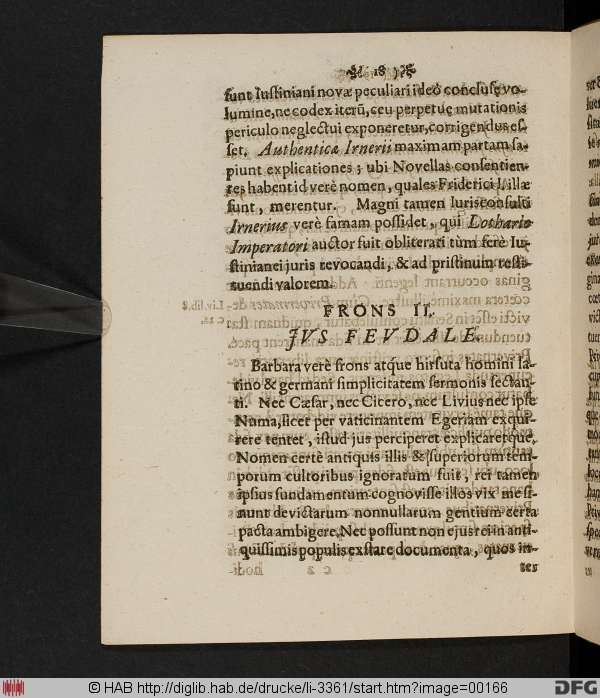 18
sunt Iustiniani novæ peculiari ideò conclusę vo-
lumine, ne codex iterũ, ceu perpetuę mutationis
periculo neglectui exponeretur, corrigendus es-
set. Authenticæ Irnerii maximam partam sa-
piunt explicationes; ubi Novellas consentien-
tes habent id verè nomen, quales Friderici I. illæ
sunt, merentur. Magni tamen Iurisconsulti
Irnerius verè famam possidet, qui Lothario
Imperatori auctor fuit obliterati tùm ferè Iu-
stinianei juris revocandi, & ad pristinum resti-
tuendi valorem.
FRONS II.
JVS FEVDALE.
Barbara verè frons atq́ue hirsuta homini la-
tino & germani simplicitatem sermonis sectan-
ti. Nec Cæsar, nec Cicero, nec Livius nec ipse
Numa, licet per vaticinantem Egeriam exqui-
rere tentet, istud jus perciperet explicaretq́ue.
Nomen certè antiquis illis & superiorum tem-
porum cultoribus ignoratum fuit, rei tamen
ipsius fundamentum cognovisse illos vix me si-
nunt devictarum nonnullarum gentium certa
pacta ambigere. Nec possunt non ejus rei in anti-
quissimis populis exstare documenta, quos in-
ter
© HAB http://diglib.hab.de/drucke/li-3361/start.htm?image=00166
DFG